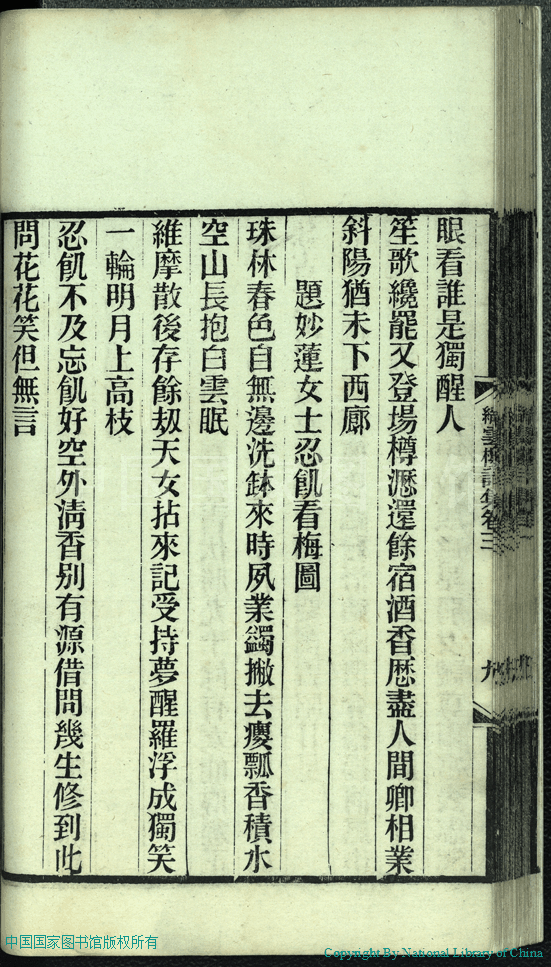 眼看誰是獨醒人
笙歌纔罷又登場樽瀝還餘宿酒香歷盡人間卿相業
斜陽猶未下西廊
題妙蓮女士忍飢看梅圖
珠林春色自無邊洗鉢來時夙業蠲撇去癭瓢香積水
空山長抱白雲眠
維摩散後存餘刼天女拈來記受持夢醒羅浮成獨笑
一輪明月上高枝
忍飢不及忘飢好空外清香别有源借問幾生修到此
問花花笑但無言
雲樵詩集卷三
九
中国国家图书馆版权所有
Copyright By National Library of China